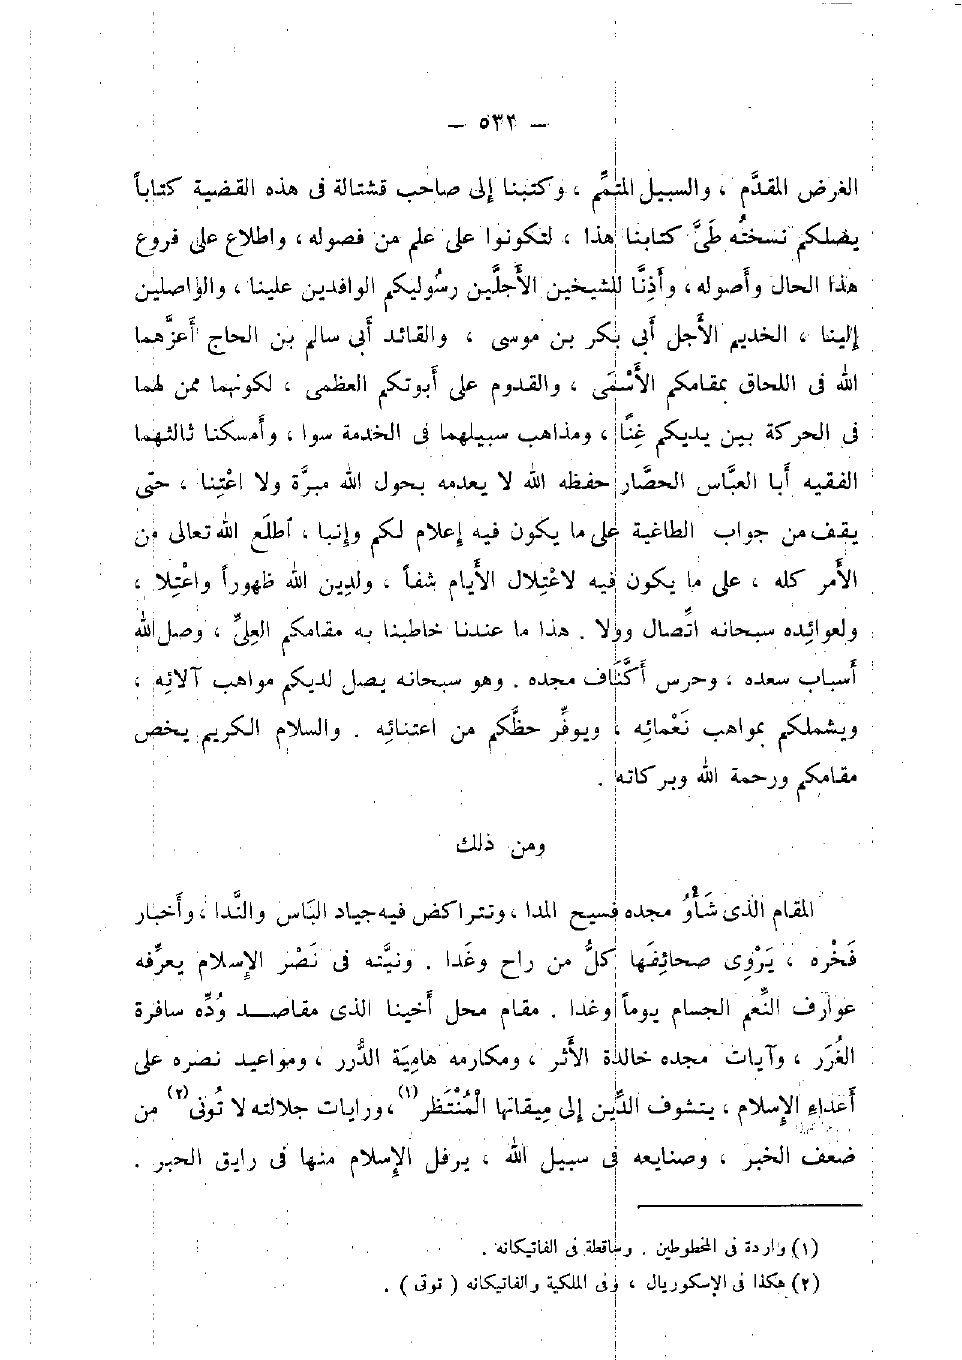 — ٥٣٢ —
الغرض المقدَّم ، والسبيل المتمِّم ، وكتبنا إلى صاحب قشتالة فى هذه القضية كتاباً
يصلكم نسختُه طَىَّ كتابنا هذا ، لتكونوا على علم من فصوله ، واطلاع على فروع
هذا الحال وأصوله ، وأذِنَّا للشيخين الأَجلَّين رسُوليكم الوافدين علينا ، والواصلين
إلينا ، الخديم الأَجل أبى بكر بن موسى ، والقائد أبى سالم بن الحاج أعزَّهما
الله فى اللحاق بمقامكم الأَسْمَى ، والقدوم على أبوتكم العظمى ، لكونهما ممن لهما
فى الحركة بين يديكم غِنًّا ، ومذاهب سبيلهما فى الخدمة سوا ، وأمسكنا ثالثهما
الفقيه أبا العبَّاس الحصَّار حفظه الله لا يعدمه بحول الله مبرَّة ولا اعْتِنا ، حتى
يقف من جواب الطاغية على ما يكون فيه إعلام لكم وإنبا ، أطلَع الله تعالى من
الأَمر كله ، على ما يكون فيه لاعْتِلال الأَيام شفاً ، ولدِين الله ظهوراً واعْتِلا ،
ولعوائِده سبحانه اتِّصال وولا . هذا ما عندنا خاطبنا به مقامكم العلِىَّ ، وصل الله
أسباب سعده ، وحرس أكَنَّاف مجده . وهو سبحانه يصل لديكم مواهب آلائِه ،
ويشملكم بمواهب نَعْمائِه ، ويوفِّر حظَّكم من اعتنائِه . والسلام الكريم يخص
مقامكم ورحمة الله وبركاته .
ومن ذلك
المقام الذى شَأْوُ مجده فسيح المدا ، وتتراكض فيه جياد البَاس والنَّدا ، وأَخبار
فَخْره ، يَرْوِى صحائِفَها كلُّ من راح وغَدا . ونيَّته فى نَصْر الإسلام يعرِّفه
عوارف النِّعم الجسام يوماً وغدا . مقام محل أخينا الذى مقاصد وُدِّه سافرة
الغُرَر ، وآيات مجده خالدة الأَثر ، ومكارمه هامِيَة الدُّرر ، ومواعيد نصره على
أعداءِ الإِسلام ، يتشوف الدِّين إلى مِيقاتها الْمُنْتَظر(١) ، ورايات جلالته لا تُوتى(٢) من
ضعف الخبر ، وصنايعه فى سبيل الله ، يرفل الإِسلام منها فى رايق الحبر .
(١) واردة فى المخطوطين . وساقطة فى الفاتيكانه .
(٢) هكذا فى الإسكوريال ، وفى الملكية والفاتيكانه ( توقى ) .